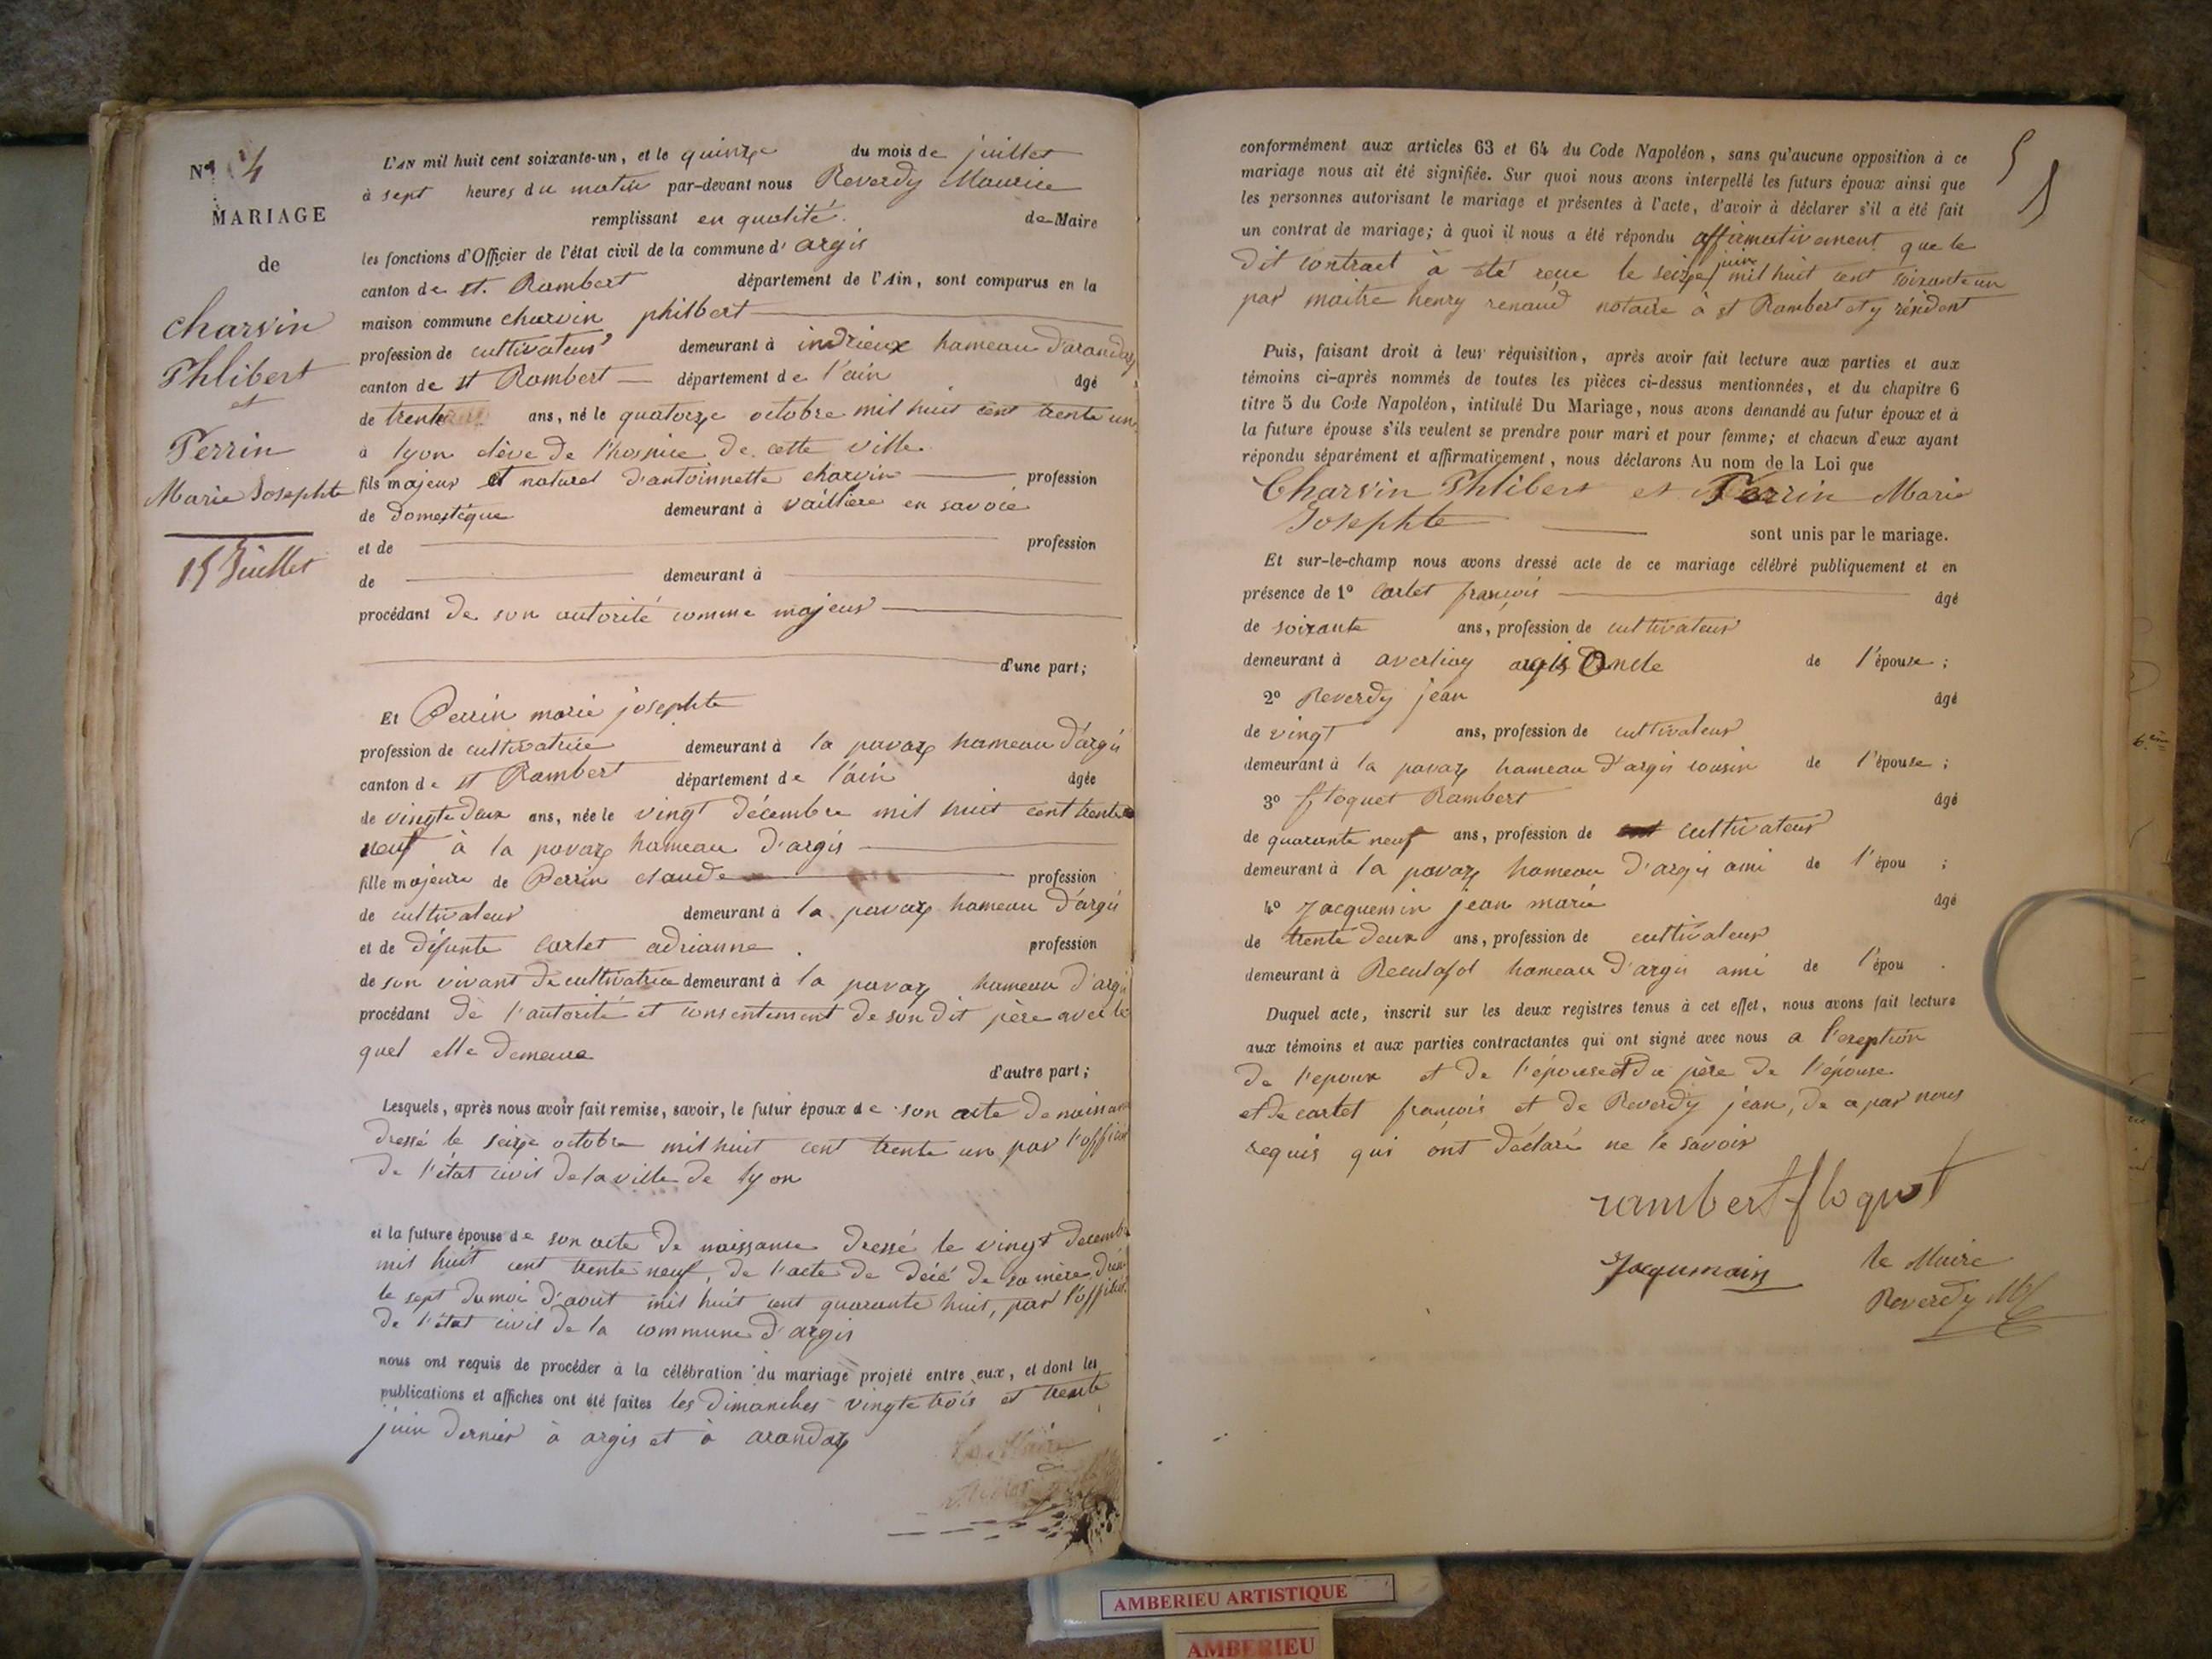 N° 4
MARIAGE
de
charvin
Phlibert
et
Perrin
Marie Josephte
15 Juillet
L'AN mil huit cent soixante-un, et le quinze du mois de juillet
à sept heures du matin par-devant nous Reverdy Maurice
remplissant en qualité de Maire
les fonctions d'Officier de l'état civil de la commune d'argis
canton de st. Rambert département de l'Ain, sont comparus en la
maison commune charvin philbert
profession de cultivateur demeurant à indrieux hameau d'arandas
canton de st Rambert département de l'ain âgé
de trente ans, né le quatorze octobre mil huit cent trente un
à lyon élève de l'hospice de cette ville
fils majeur et naturel d'antoinnette charvin profession
de Domestique demeurant à vaillière en savoie
et de profession
de demeurant à
procédant de son autorité comme majeur
d'une part;
Et Perrin marie josephte
profession de cultivatrice demeurant à la pavaz hameau d'argis
canton de st Rambert département de l'ain âgée
de vingte deux ans, née le vingt décembre mil huit cent trente
neuf à la pavaz hameau d'argis
fille majeure de Perrin claude profession
de cultivateur demeurant à la pavaz hameau d'argis
et de défunte Cartet adrianne profession
de son vivant de cultivatrice demeurant à la pavaz hameau d'argis
procédant de l'autorité et consentement de son dit père avec le
quel elle demeure
d'autre part;
Lesquels, après nous avoir fait remise, savoir, le futur époux de son acte de naissance
dressé le seize octobre mil huit cent trente un par l'officier
de l'état civil de la ville de lyon
et la future épouse de son acte de naissance dressé le vingt decembre
mil huit cent trente neuf, de l'acte de décé de sa mère
le sept du moi d'aout mil huit cent quarante huit, par l'officier
de l'état civil de la commune d'argis
nous ont requis de procéder à la célébration du mariage projeté entre eux, et dont les
publications et affiches ont été faites les dimanches vingte trois et trente
juin dernier à argis et à arandaz
conformément aux articles 63 et 64 du Code Napoléon, sans qu'aucune opposition à ce
mariage nous ait été signifiée. Sur quoi nous avons interpellé les futurs époux ainsi que
les personnes autorisant le mariage et présentes à l'acte, d'avoir à déclarer s'il a été fait
un contrat de mariage; à quoi il nous a été répondu affirmativement que le
dit contract à été reçue le seize juin mil huit cent soixante un
par maitre henry renaud notaire à st Rambert et y résident
Puis, faisant droit à leur réquisition, après avoir fait lecture aux parties et aux
témoins ci-après nommés de toutes les pièces ci-dessus mentionnées, et du chapitre 6
titre 5 du Code Napoléon, intitulé Du Mariage, nous avons demandé au futur époux et à
la future épouse s'ils veulent se prendre pour mari et pour femme; et chacun d'eux ayant
répondu séparément et affirmativement, nous déclarons Au nom de la Loi que
Charvin Phlibert et Perrin Marie
Josephte sont unis par le mariage.
Et sur-le-champ nous avons dressé acte de ce mariage célébré publiquement et en
présence de 1° Cartet françois âgé
de soixante ans, profession de cultivateur
demeurant à averliaz argis Oncle de l'épouse;
2° Reverdy jean âgé
de vingt ans, profession de cultivateur
demeurant à la pavaz hameau d'argis cousin de l'épouse;
3° floquet Rambert âgé
de quarante neuf ans, profession de cultivateur
demeurant à la pavaz hameau d'argis ami de l'épou;
4° Jacquemin jean marie âgé
de trente deux ans, profession de cultivateur
demeurant à Reculafol hameau d'argis ami de l'épou.
Duquel acte, inscrit sur les deux registres tenus à cet effet, nous avons fait lecture
aux témoins et aux parties contractantes qui ont signé avec nous a l'exeption
de l'epoux et de l'épouse et du père de l'épouse
et de cartet françois et de Reverdy jean, de a par nous
requis qui ont déclaré ne le savoir
rambert floquet
Jacquemain
le Maire
Reverdy M
AMBERIEU ARTISTIQUE
AMBERIEU